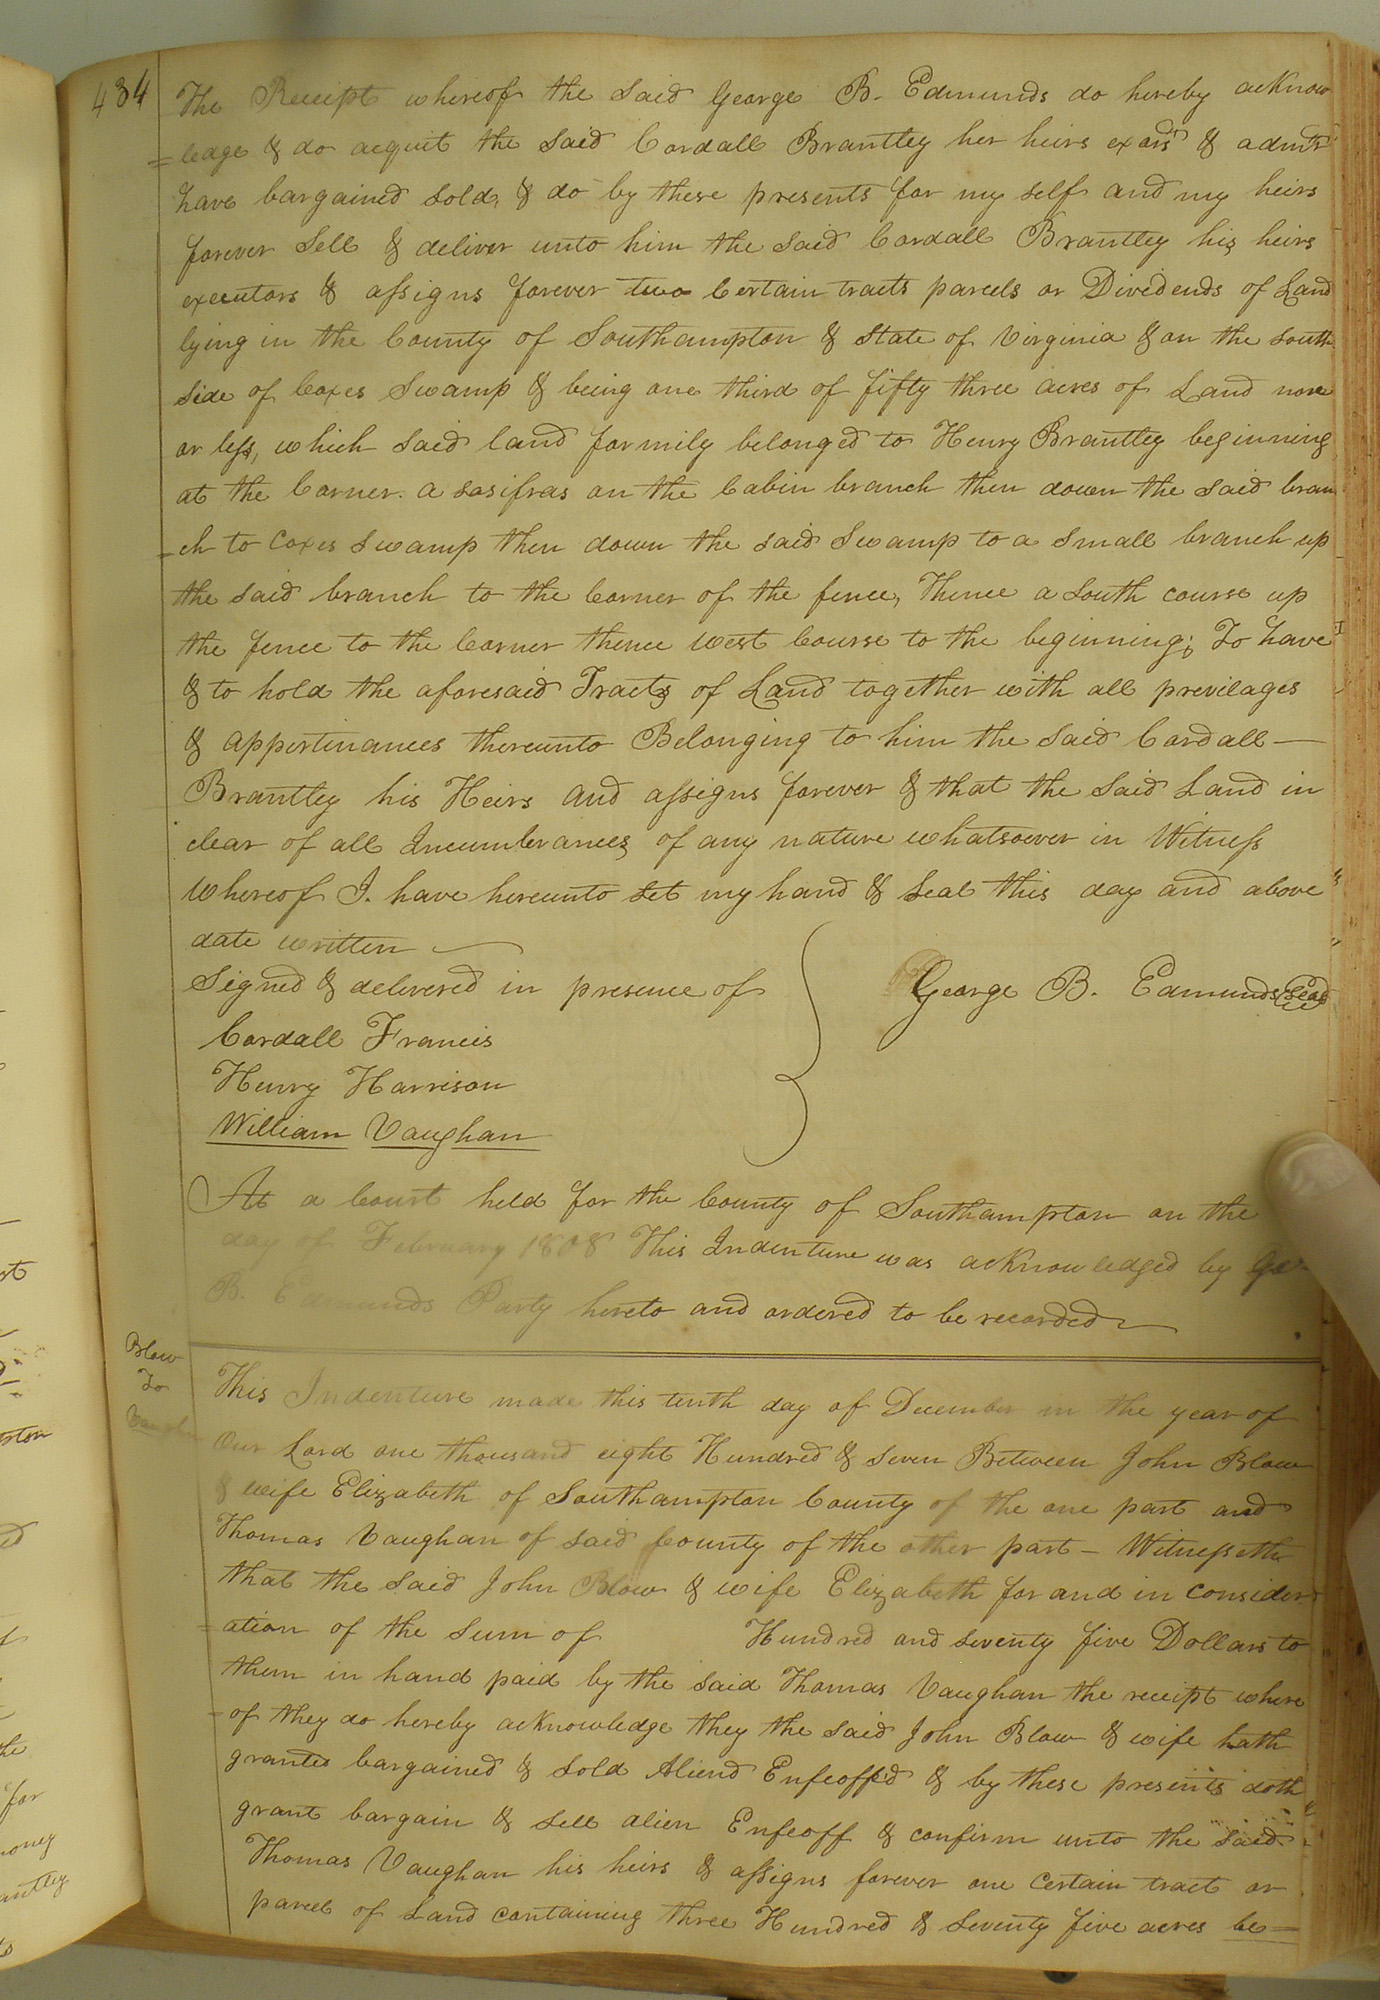 434
The Receipt whereof the said George B. Edmunds do hereby acknow
=ledge & do acquit the said Cordall Brantley her heirs exõrs & admrs
have bargained sold, & do by these presents for my self and my heirs
forever Sell & deliver unto him the said Cordall Brantley his heirs
executors & assigns forever two Certain tracts parcels or Dividends of Land
lying in the County of Southampton & State of Virginia & on the south
side of Coxes Swamp & being one third of fifty three acres of Land more
or less, which said land formily belonged to Henry Brantley beginning
at the Corner. a sasifras on the Cabin branch then down the said bran
=ch to Coxes Swamp then down the said Swamp to a small branch up
the said branch to the Corner of the fence, Thence a South course up
the fence to the Corner thence West Course to the beginning; To have
& to hold the aforesaid Tracts of Land together with all previlages
& appertinances thereunto Belonging to him the said Cordall —
Brantley his Heirs and assigns forever & that the said Land in
clear of all Incumbrances of any nature whatsoever in Witness
Whereof I. have hereunto set my hand & seal this day and above
date written
Signed & delivered in presence of
George B. Edmunds Seal
Cordall Francis
Henry Harrison
William Vaughan
At a Court held for the County of Southampton on the
day of February 1808 This Indenture was acknowledged by Geo
B. Edmunds Party hereto and ordered to be recorded
Blow
To
Vaughan
This Indenture made this tenth day of December in the year of
Our Lord one thousand eight Hundred & Seven Between John Blow
& wife Elizabeth of Southampton County of the one part and
Thomas Vaughan of said County of the other part – Witnesseth
that the said John Blow & wife Elizabeth for and in consider
=ation of the sum of Hundred and seventy five Dollars to
them in hand paid by the said Thomas Vaughan the receipt where
=of they do hereby acknowledge they the said John Blow & wife hath
granted bargained & sold Aliend Enfeoff'd & by these presents doth
grant bargain & sell alien Enfeoff & confirm unto the said
Thomas Vaughan his heirs & assigns forever one certain tract or
parcel of Land containing three Hundred & Seventy five acres be=